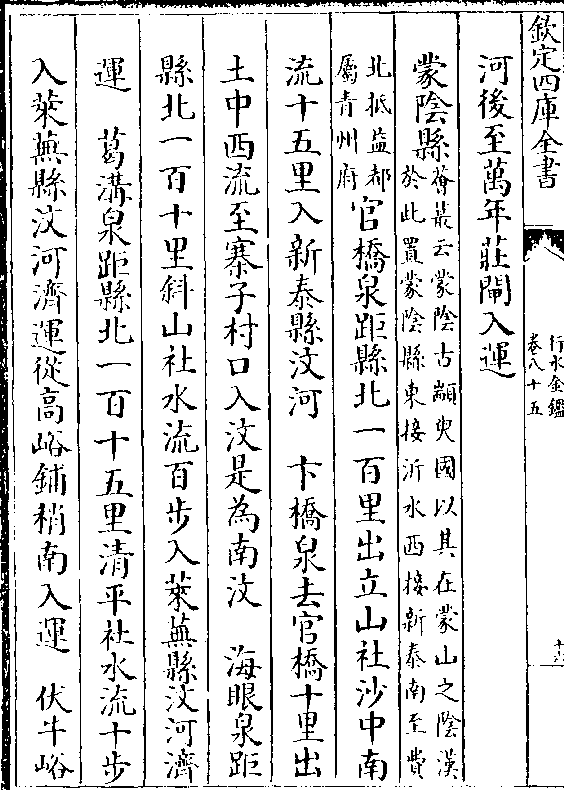 欽定四庫全書
行水金鑑
卷八十五
十六
河後至萬年莊閘入運
蒙陰縣薈蕞云蒙陰古顓臾國以其在蒙山之陰漢
於此置蒙陰縣東接沂水西接新泰南至費
北抵益都
屬青州府
官橋泉距縣北一百里出立山社沙中南
流十五里入新泰縣汶河　卞橋泉去官橋十里出
土中西流至寨子村口入汶是為南汶　海眼泉距
縣北一百十里斜山社水流百步入萊蕪縣汶河濟
運　葛溝泉距縣北一百十五里清平社水流十步
入萊蕪縣汶河濟運從高峪鋪稍南入運　伏牛峪